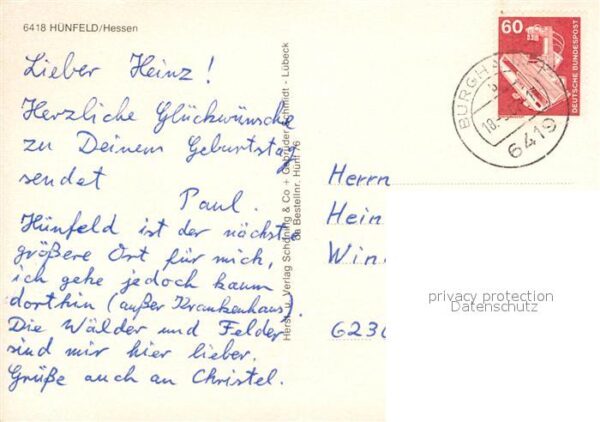 6418 HÜNFELD/Hessen
Lieber Heinz!
Herzliche Glückwünsche
zu Deinem Geburtstag
sendet
Paul.
Hünfeld ist der nächst
größere Ort für mich,
ich gehe jedoch kaum
dorthin (außer Krankenhaus).
Die Wälder und Felder
sind mir hier lieber.
Grüße auch an Christel.
Herst. u. Verlag Schöning & Co + Gebrüder Schmidt - Lübeck
Bestellnr. Hünf 76
60
DEUTSCHE BUNDESPOST
6419
Herrn
Hein
Win
623
privacy protection
Datenschutz